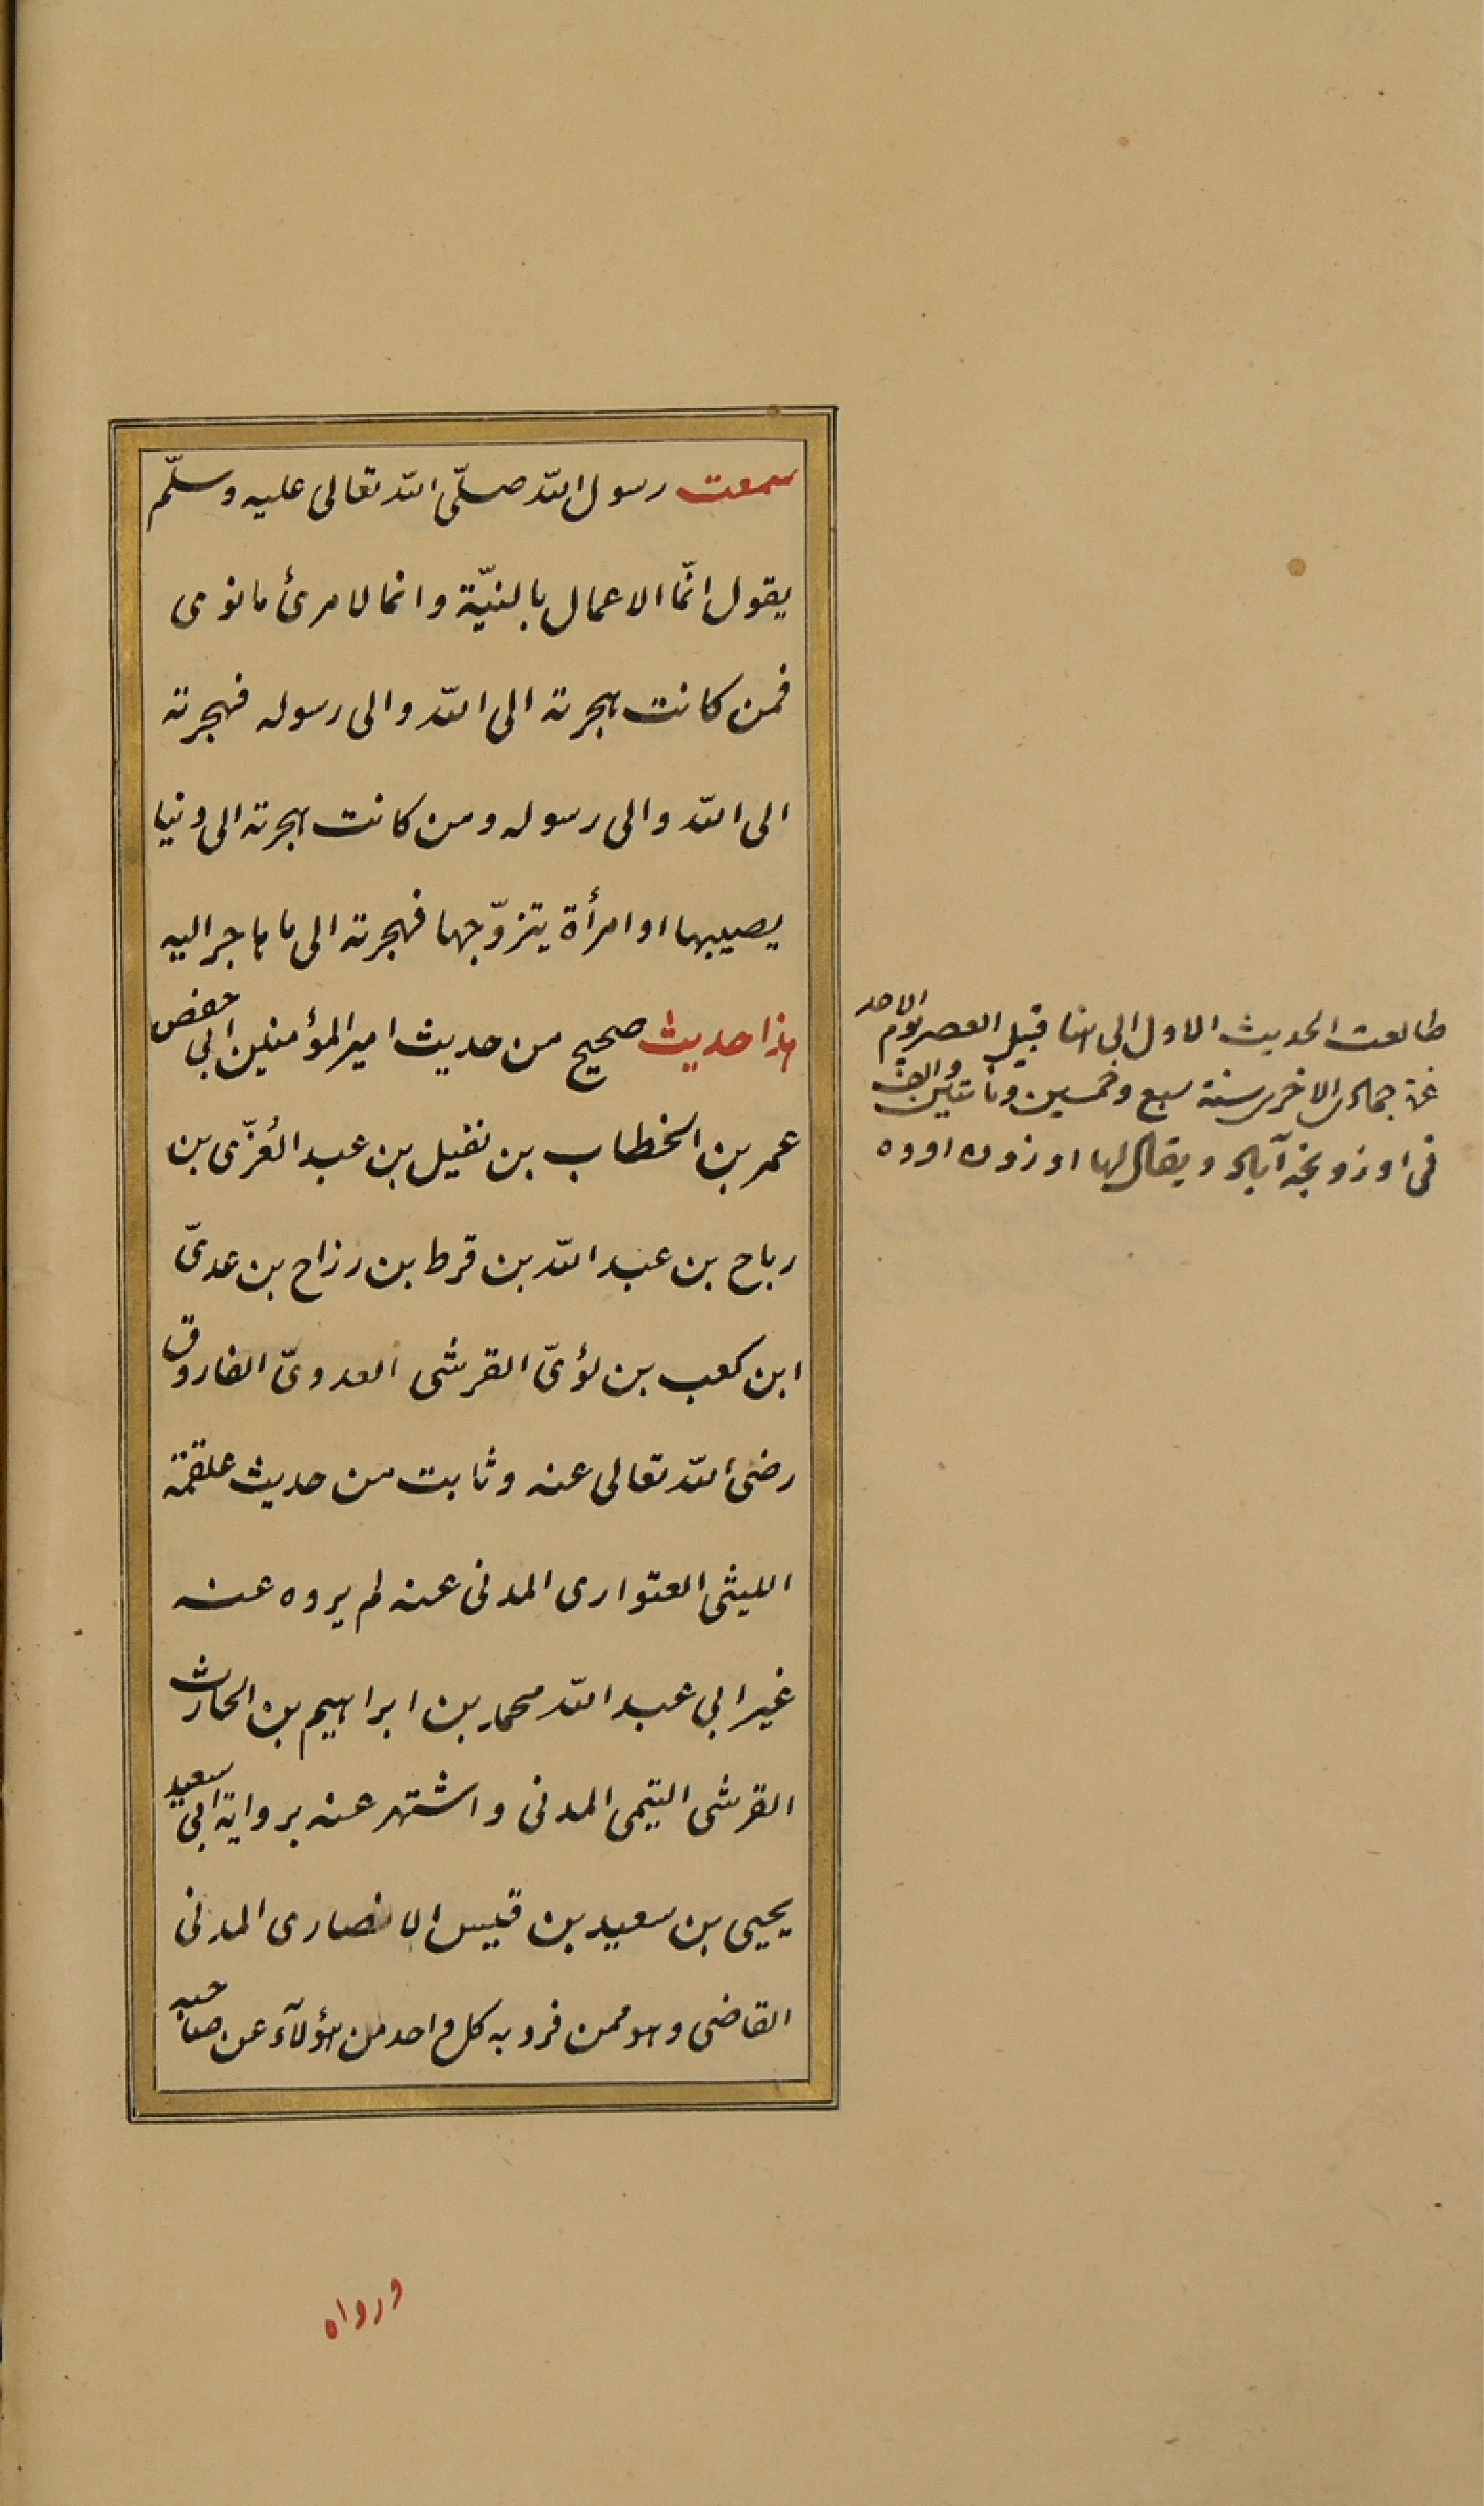 سمعت رسول الله صلّى الله تعالى عليه وسلّم
يقول انّما الاعمال بالنيّة وانما لامرئ ما نوى
فمن كانت هجرته الى الله والى رسوله فهجرته
الى الله والى رسوله ومن كانت هجرته الى دنيا
يصيبها او امرأة يتزوّجها فهجرته الى ما هاجر اليه
هذا حديث صحيح من حديث امير المؤمنين ابى حفص
عمر بن الخطاب بن نفيل بن عبد العُزّى بن
رباح بن عبد الله بن قرط بن رزاح بن عدىّ
ابن كعب بن لؤىّ القرشى العدوىّ الفاروق
رضى الله تعالى عنه وثابت من حديث علقمة
الليثى العتوارى المدنى عنه لم يروه عنه
غير ابى عبد الله محمد بن ابراهيم بن الحارث
القرشى التيمى المدنى واشتهر عنه برواية ابى سعيد
يحيى بن سعيد بن قيس الانصارى المدنى
القاضى وهو ممن فرد به كل واحد من هؤلآء عن صاحبه
ورواه
طالعت الحديث الاول الى هنا قبيل العصر يوم الاحد
غرة جمادى الاخرى سنة سبع وخمسين ومائتين والف
فى اوزونجه آباد ويقال لها اوزون اووه